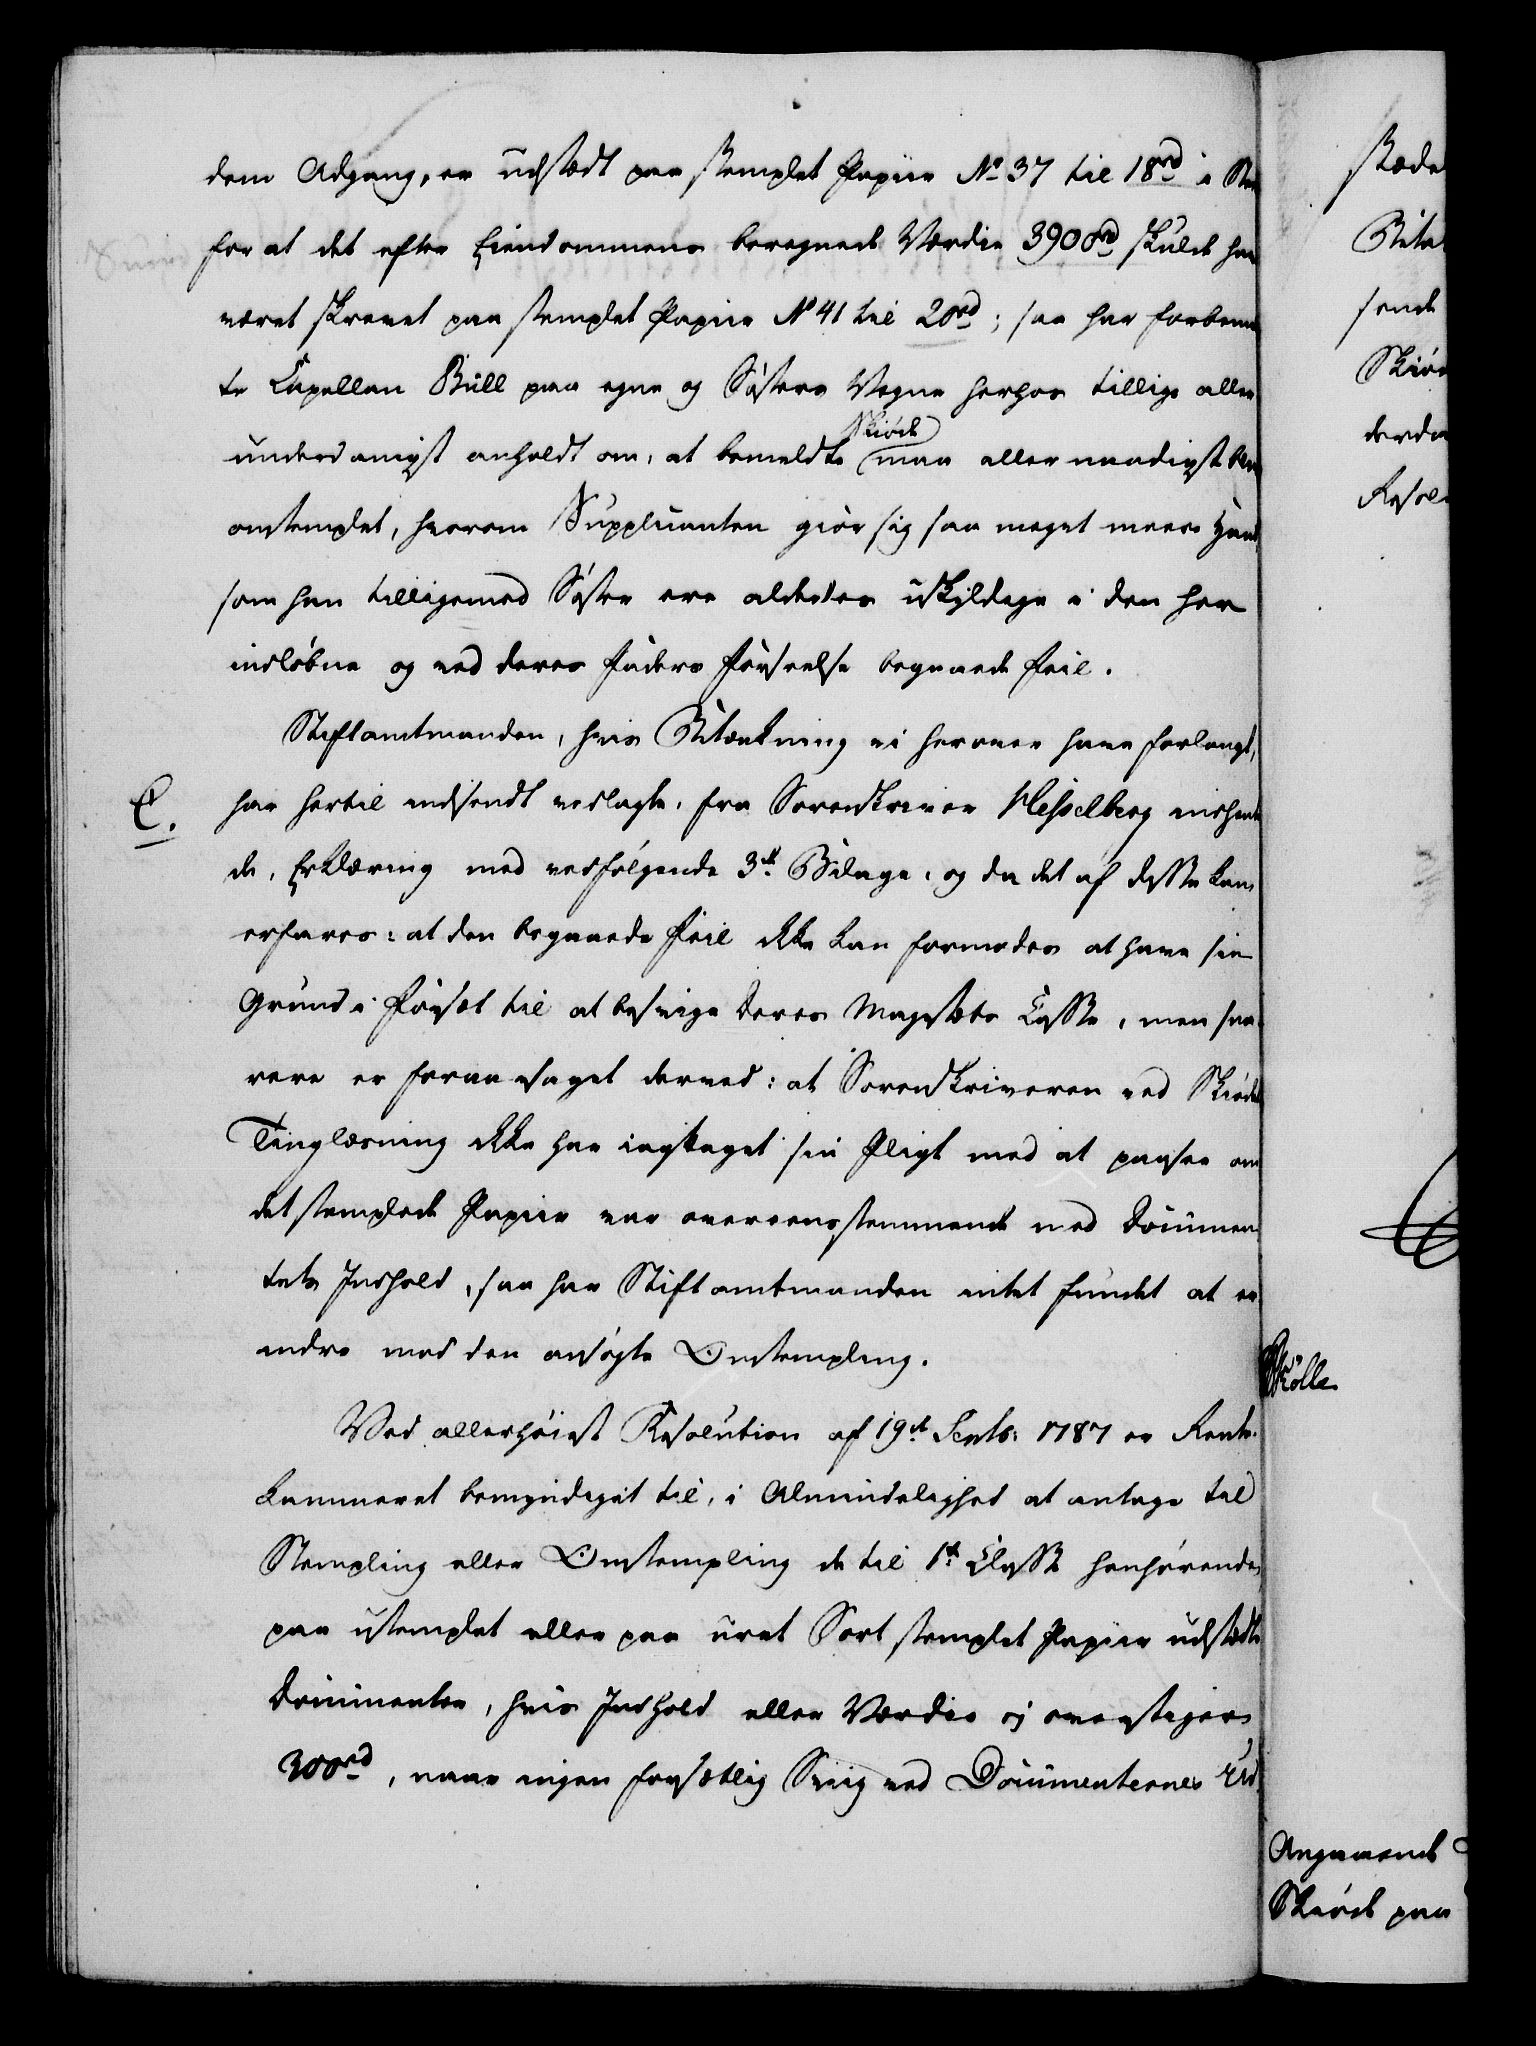 dem Adgang, er udstædt paa stemplet Papiir No 37 til 18rd i Ste
for at det efter Eiendommens beregnede Værdie 3900rd skulde ha
været skrevet paa stemplet Papiir No 41 til 20rd; saa har forbem
te Capellan Bull paa egne og Søsters Vegne herhos tillige aller
underdanigst anholdt om, at bemeldte Skiøde maa allernaadigst bli
omstemplet, hvorom Supplicanten giør sig saa meget meere Haab
som han tilligemed Søster ere aldeeles uskyldige i den her
indløbne og ved deres Faders Forseelse begaaede Feil.
Stiftamtmanden, hvis Betænkning vi herover have forlangt,
E. har hertil indsendt vedlagte, fra Sorenskriver Hesselberg indhente
de, Erklæring med vedfølgende 3de Bilage, og da det af disse kan
erfares: at den begaaede Feil ikke kan formodes at have sin
Grund i Forsæt til at besvige Deres Majestæts Casse, men sna
rere er foraarsaget derved: at Sorenskriveren ved Skiødets
Tinglæsning ikke har iagttaget sin Pligt med at paasee om
det stemplede Papiir var overeensstemmende med Documen
tets Indhold, saa har Stiftamtmanden intet fundet at er
indre mod den ansøgte Omstempling.
Ved allerhøiest Resolution af 19de Septb: 1787 er Rente-
kammeret bemyndiget til, i Almindelighed at antage til
Stempling eller Omstempling de til 1te Classe henhørende,
paa ustemplet eller paa uret Sort stemplet Papiir udstædte
Documenter, hvis Indhold eller Værdie ej overstiger
300rd, naar ingen forsætlig Sviig ved Documenternes Ud
skæde
Beta
sende
Skiø
derda
Resol
Mølle
Angaaende
Skiøde paa